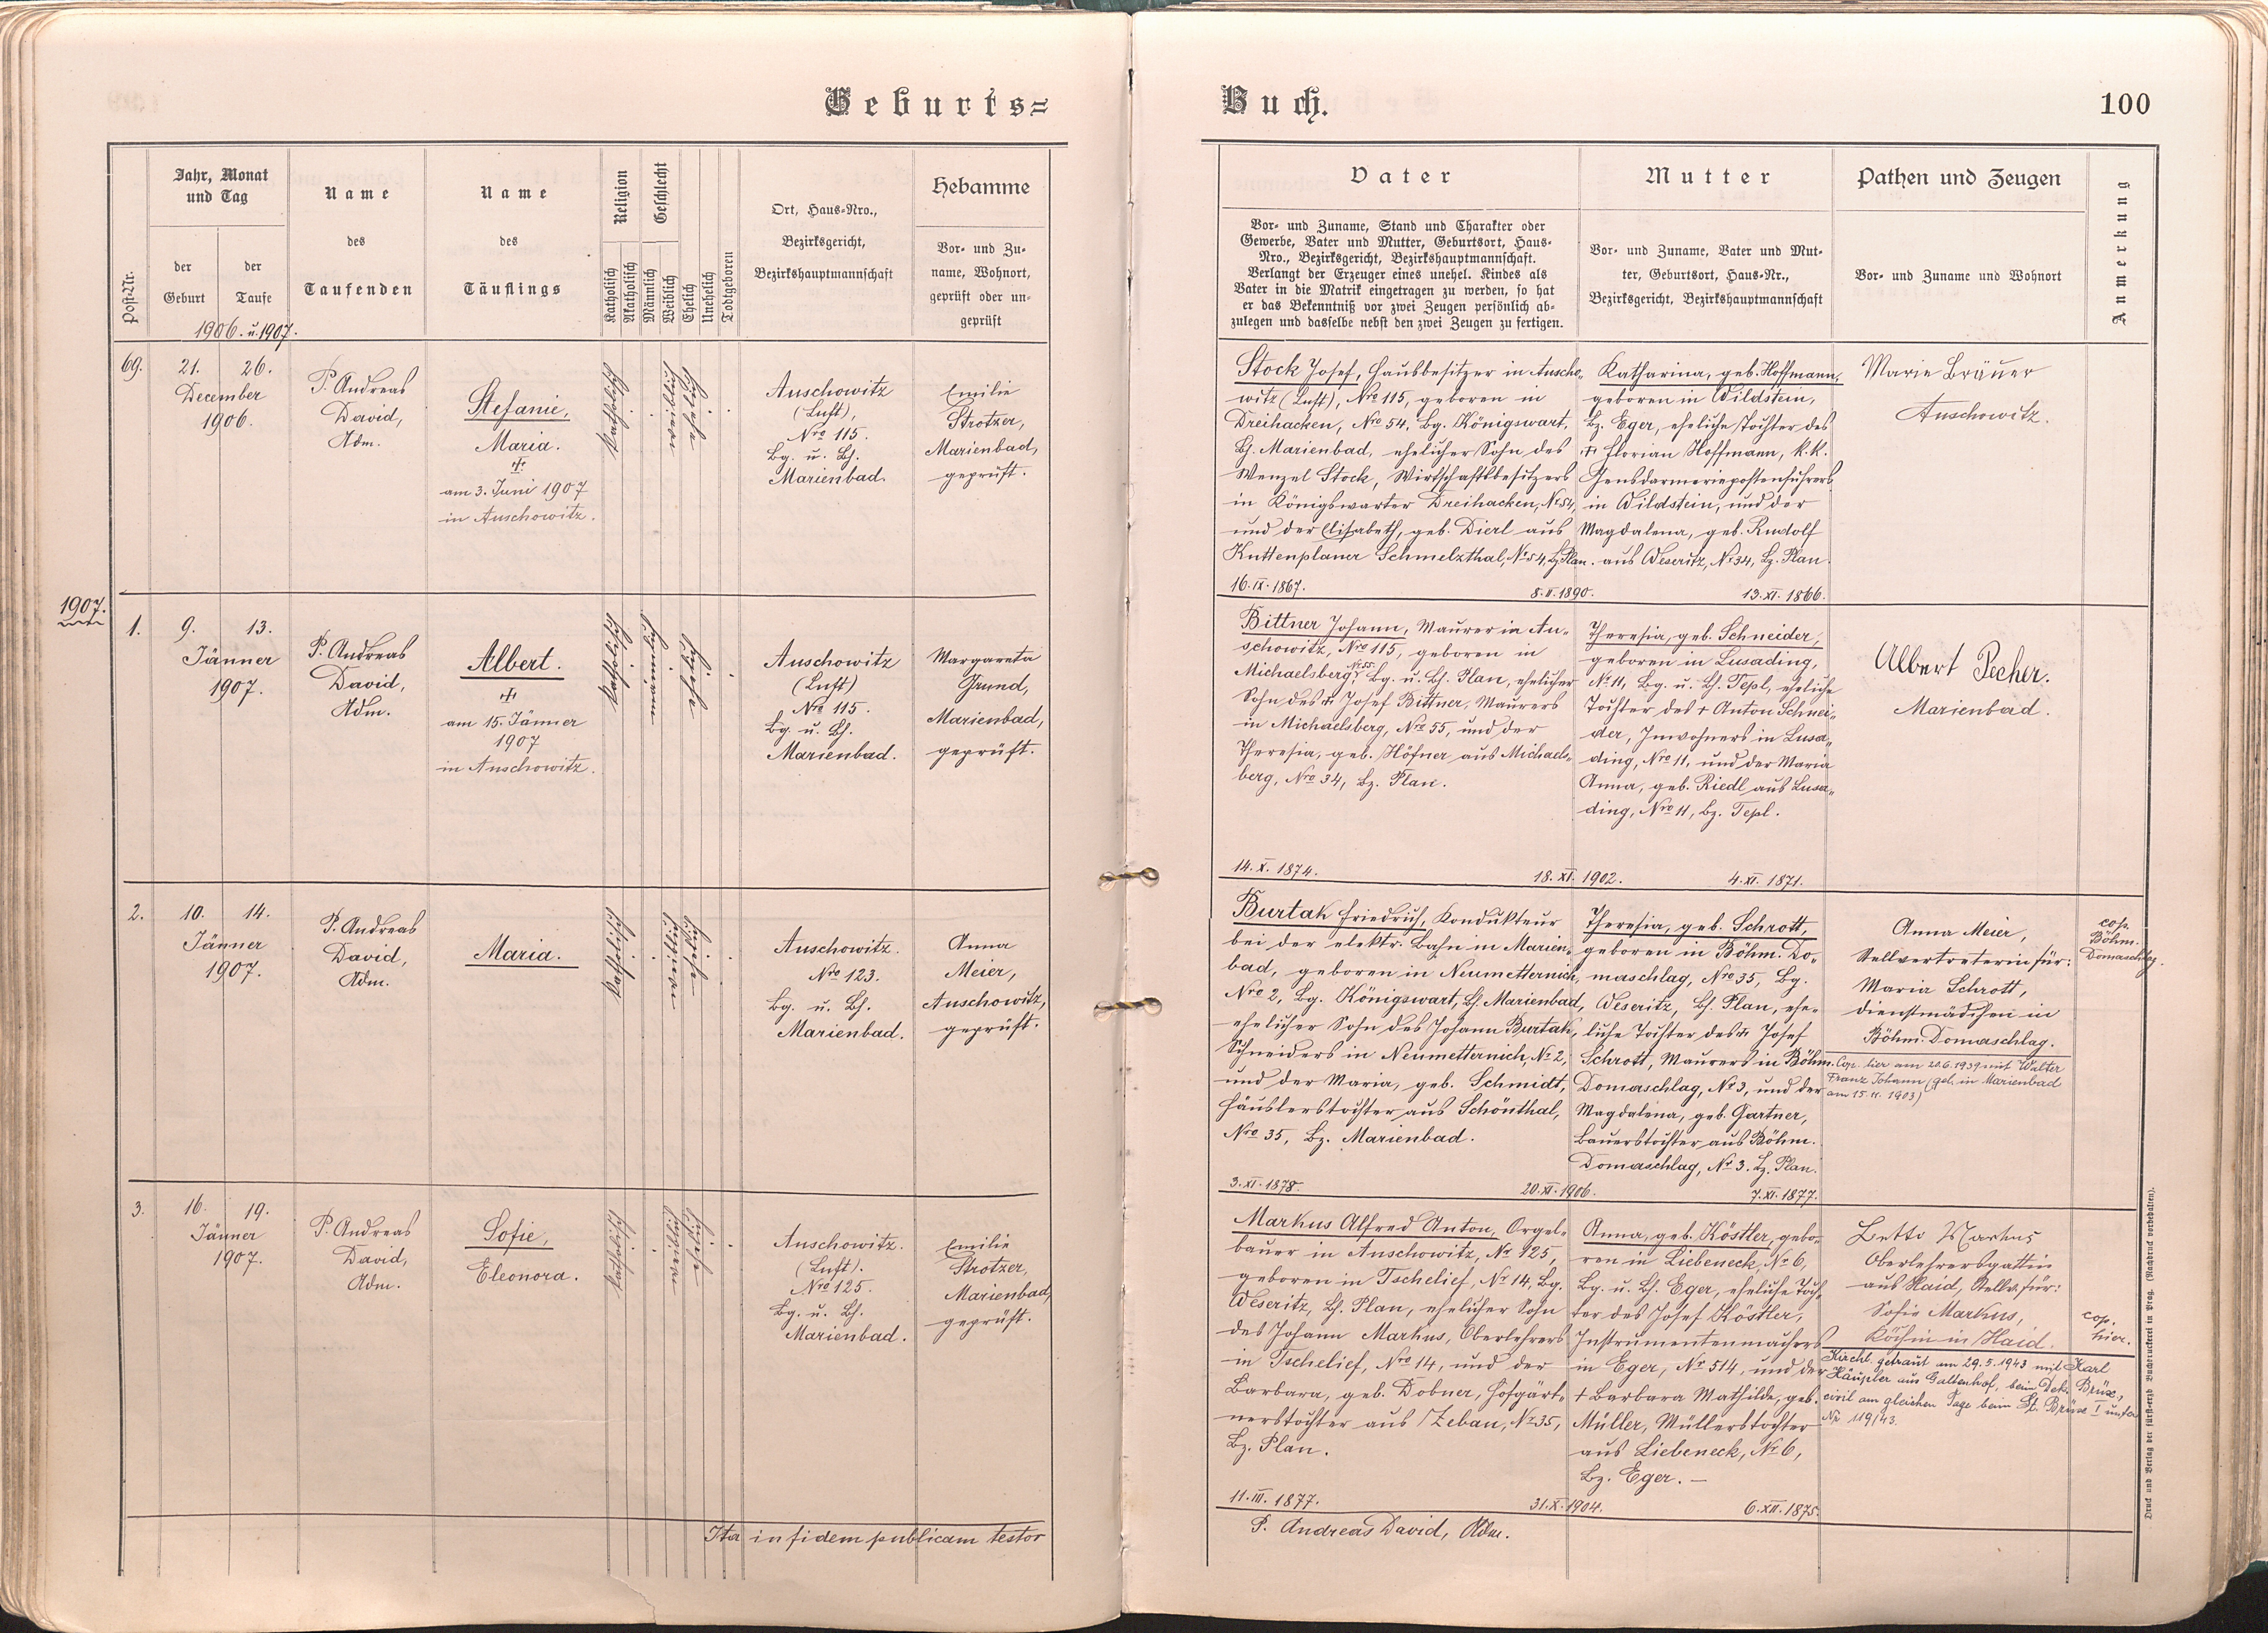 Geburts=
Jahr, Monat
und Tag
Post-Nr.
der
Geburt
der
Taufe
1906. u. 1907.
Name
des
Taufenden
Name
des
Täuflings
Religion
Katholisch
Akatholisch
Geschlecht
Männlich
Weiblich
Ehelich
Unehelich
Todtgeboren
Ort, Haus-Nro.,
Bezirksgericht,
Bezirkshauptmannschaft
Hebamme
Vor- und Zu-
name, Wohnort,
geprüft oder un-
geprüft
69.
21. 26.
December
1906.
P. Andreas
David,
Adm.
Stefanie,
Maria.
am 3. Juni 1907
in Auschowitz.
katholisch
Auschowitz
(Luft),
Nro 115.
Bg. u. Bh.
Marienbad.
Emilie
Strotzer,
Marienbad,
geprüft.
1907.
1.
9. 13.
Jänner
1907.
P. Andreas
David,
Adm.
Albert.
am 15. Jänner
1907
in Auschowitz.
katholisch
Auschowitz
(Luft)
Nro 115.
Bg. u. Bh.
Marienbad.
Margareta
Grund,
Marienbad,
geprüft.
2.
10. 14.
Jänner
1907.
P. Andreas
David,
Adm.
Maria.
katholisch
Auschowitz.
Nro 123.
Bg. u. Bh.
Marienbad.
Anna
Meier,
Auschowitz,
geprüft.
3.
16. 19.
Jänner
1907.
P. Andreas
David,
Adm.
Sofie,
Eleonora.
katholisch
Auschowitz.
(Luft).
Nro 125.
Bg. u. Bh.
Marienbad.
Emilie
Strotzer,
Marienbad,
geprüft.
Ita in fidem publicam testor
Buch.
100
Vater
Vor- und Zuname, Stand und Charakter oder
Gewerbe, Vater und Mutter, Geburtsort, Haus-
Nro., Bezirksgericht, Bezirkshauptmannschaft.
Verlangt der Erzeuger eines unehel. Kindes als
Vater in die Matrik eingetragen zu werden, so hat
er das Bekenntniß vor zwei Zeugen persönlich ab-
zulegen und dasselbe nebst den zwei Zeugen zu fertigen.
Mutter
Vor- und Zuname, Vater und Mut-
ter, Geburtsort, Haus-Nr.,
Bezirksgericht, Bezirkshauptmannschaft
Pathen und Zeugen
Vor- und Zuname und Wohnort
Anmerkung
Stock Josef, Hausbesitzer in Auscho-
witz (Luft), Nro 115, geboren in
Dreihacken, Nro 54, Bg. Königswart,
Bh. Marienbad, ehelicher Sohn des
Wenzel Stock, Wirtschaftsbesitzers
in Königswarter Dreihacken, Nr. 54,
und der Elisabeth, geb. Dierl aus
Kuttenplaner Schmelzthal, Nr. 54, Bz. Plan.
16. IX. 1867. 8. II. 1890.
Katharina, geb. Hoffmann,
geboren in Wildstein,
Bz. Eger, eheliche Tochter des
+ Florian Hoffmann, k. k.
Gensdarmeriepostenführers
in Wildstein, und der
Magdalena, geb. Rudolf
aus Weseritz, Nr. 34, Bz. Plan.
13. XI. 1866.
Marie Bräuer
Auschowitz.
Bittner Johann, Maurer in Au-
schowitz, Nro 115, geboren in
Michaelsberg, Nr. 55. Bg. u. Bh. Plan, ehelicher
Sohn des + Josef Bittner, Maurers
in Michaelsberg, Nro 55, und der
Theresia, geb. Höfner aus Michaels-
berg, Nro 34, Bz. Plan.
14. X. 1874. 18. XI. 1902.
Theresia, geb. Schneider,
geboren in Lusading,
Nr. 11, Bg. u. Bh. Tepl, eheliche
Tochter des + Anton Schnei-
der, Inwohners in Lusa-
ding, Nro 11, und der Maria
Anna, geb. Riedl aus Lusa-
ding, Nro 11, Bz. Tepl.
4. XI. 1871.
Albert Pecher.
Marienbad.
Burtak Friedrich, Kondukteur
bei der elektr. Bahn in Marien-
bad, geboren in Neumetternich,
Nro 2, Bg. Königswart, Bh. Marienbad,
ehelicher Sohn des Johann Burtak,
Schneiders in Neumetternich, Nr. 2,
und der Maria, geb. Schmidt,
Häuslerstochter aus Schönthal,
Nro 35, Bz. Marienbad.
3. XI. 1878. 20. XI. 1906.
Theresia, geb. Schrott,
geboren in Böhm. Do-
maschlag, Nro 35, Bg.
Weseritz, Bh. Plan, ehe-
liche Tochter des + Josef
Schrott, Maurers in Böhm.
Domaschlag, Nr. 3, und der
Magdalena, geb. Gartner,
Bauerstochter aus Böhm.
Domaschlag, Nr. 3. Bz. Plan.
7. XI. 1877.
Anna Meier,
Stellvertreterin für:
Maria Schrott,
Dienstmädchen in
Böhm. Domaschlag.
Cop. hier am 20.6.1939 mit Walter
Franz Johann (geb. in Marienbad
am 15.11.1903)
cop.
Böhm.
Domaschlag.
Markus Alfred Anton, Orgel-
bauer in Auschowitz, Nr. 125,
geboren in Tschelief, Nr. 14, Bg.
Weseritz, Bh. Plan, ehelicher Sohn
des Johann Markus, Oberlehrers
in Tschelief, Nro 14, und der
Barbara, geb. Dobner, Hofgärt-
nerstochter aus Zebau, Nr. 35,
Bz. Plan.
11. III. 1877. 31. X. 1904.
Anna, geb. Köstler, gebo-
ren in Liebeneck, Nr. 6,
Bg. u. Bh. Eger, eheliche Toch-
ter des Josef Köstler,
Instrumentenmachers
in Eger, Nr. 514, und der
+ Barbara Mathilde, geb.
Müller, Müllerstochter
aus Liebeneck, Nr. 6,
Bz. Eger. —
6. XII. 1875.
Betti Markus
Oberlehrersgattin
aus Haid, Stellv. für:
Sofie Markus,
Köchin in Haid.
Kirchl. getraut am 29.5.1943 mit Karl
Häupler aus Galtenhof, beim Dek. Brüx,
civil am gleichen Tage beim St. Brüx I unter
Nr. 119/43.
cop.
hier.
P. Andreas David, Adm.
Druck und Verlag der fürst-erzb Buchdruckerei in Prag. (Nachdruck vorbehalten).